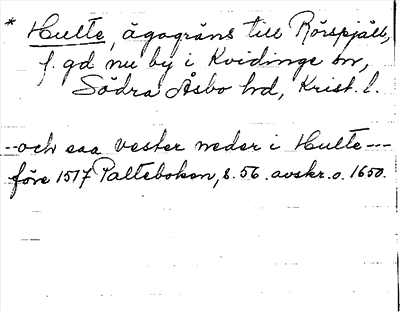 * Hulte, ägogräns till Rörspjäll,
f. gd nu by i Kvidinge sn,
Södra Åsbo hd, Krist. l.
--och saa vester neder i Hulte---
före 1517 Palteboken, s. 56. avskr. o. 1650.